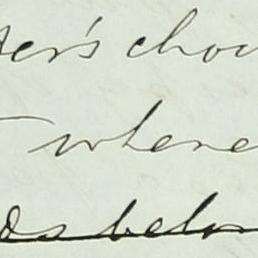 ter's chou
where
ds belon